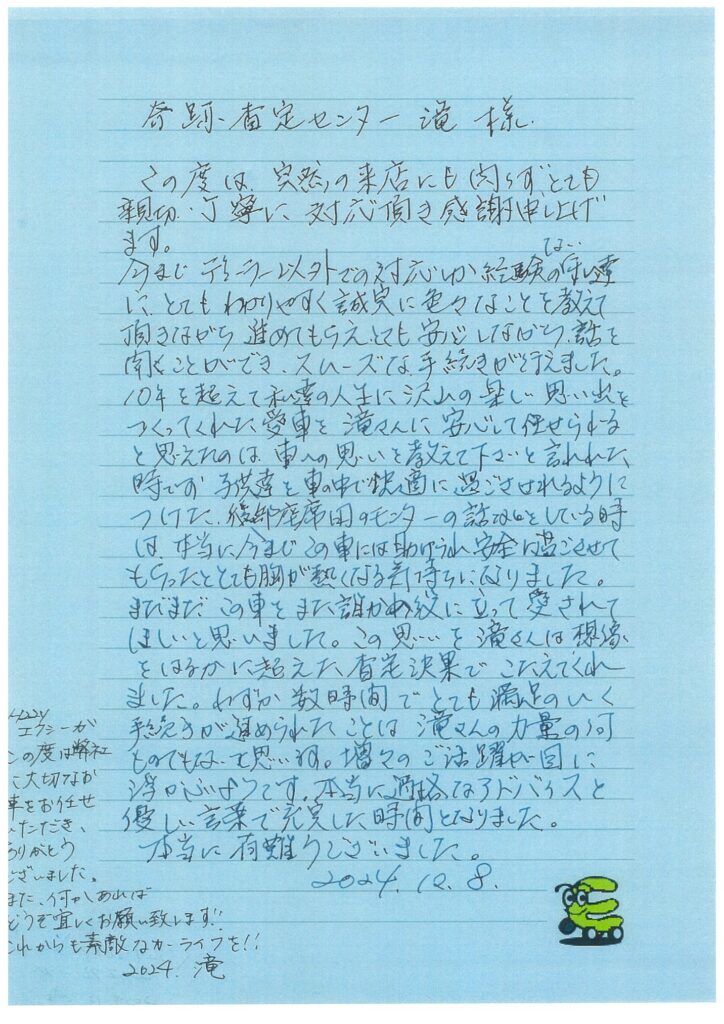 奇跡の査定センター 滝 様
この度は、突然の来店にも関らずとても
親切・丁寧に対応頂き感謝申し上げ
ます。
今までディーラー以外での対応しか経験のない私達
に、とてもわかりやすく誠実に色々なことを教えて
頂きながら進めてもらえ、とても安心しながら、話を
聞くことができ、スムーズな手続きが行えました。
10年を超えて私達の人生に沢山の楽しい思い出を
つくってくれた愛車を滝さんに安心して任せられる
と思えたのは車への思いを教えて下さいと言われた
時です 子供達と車の中で快適に過ごさせれるように
つけた、後部座席用のモニターの話などをしている時
は、本当に今までこの車には助けられ安全に過ごさせて
もらったととても胸が熱くなる気持ちになりました。
まだまだこの車をまた誰かお役に立って愛されて
ほしいと思いました。この思いを滝さんは想像
をはるかに超えた査定決果でこたえてくれ
ました。わずか数時間でとても満足のいく
手続きが進められたことは滝さんの力量の何
ものでもないと思います。増々のご活躍が目に
浮かぶようです。本当に適格なアドバイスと
優しい言葉で充実した時間となりました。
本当に有難うございました。
2024. 12. 8.
エクシーが
この度は弊社
に大切なお
車をお任せ
いただき、
ありがとう
ございました。
また、何かあれば
どうぞ宜しくお願い致します!!
これからも素敵なカーライフを!!
2024. 滝